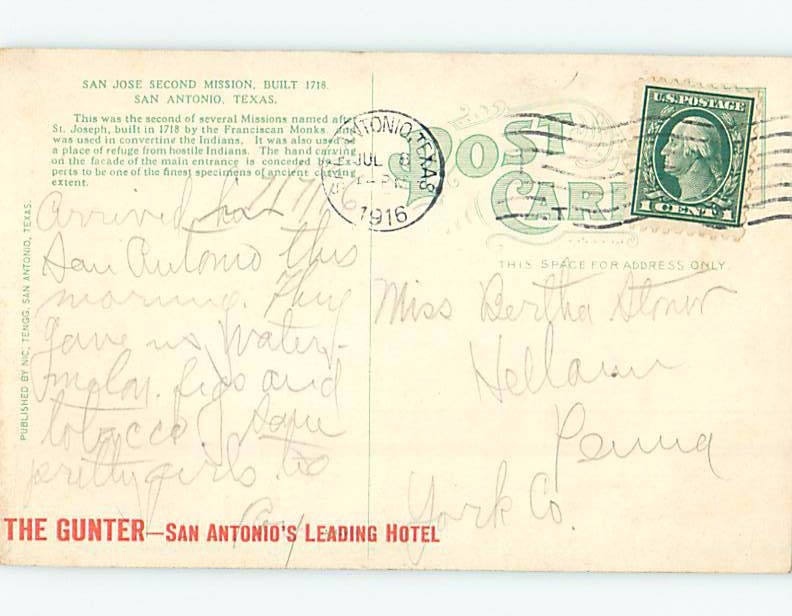 SAN JOSE SECOND MISSION, BUILT 1718.
SAN ANTONIO, TEXAS.
This was the second of several Missions named
St. Joseph, built in 1718 by the Franciscan Monks,
was used in convertine the Indians. It was also used
a place of refuge from hostile Indians. The hand carving
on the facade of the main entrance is conceded
perts to be one of the finest specimens of ancient carving
extent.
Arrived
San Antonio this
morning. They
gave us water-
melon, figs and
tobacco, Saw
pretty girls too
PUBLISHED BY NIC. TENGG, SAN ANTONIO, TEXAS.
SAN ANTONIO, TEXAS
JUL 8
1916
POST
CARD
U.S. POSTAGE
1 CENT 1
THIS SPACE FOR ADDRESS ONLY.
Miss Bertha Stoner
Hellam
Penna
York Co.
THE GUNTER—SAN ANTONIO'S LEADING HOTEL